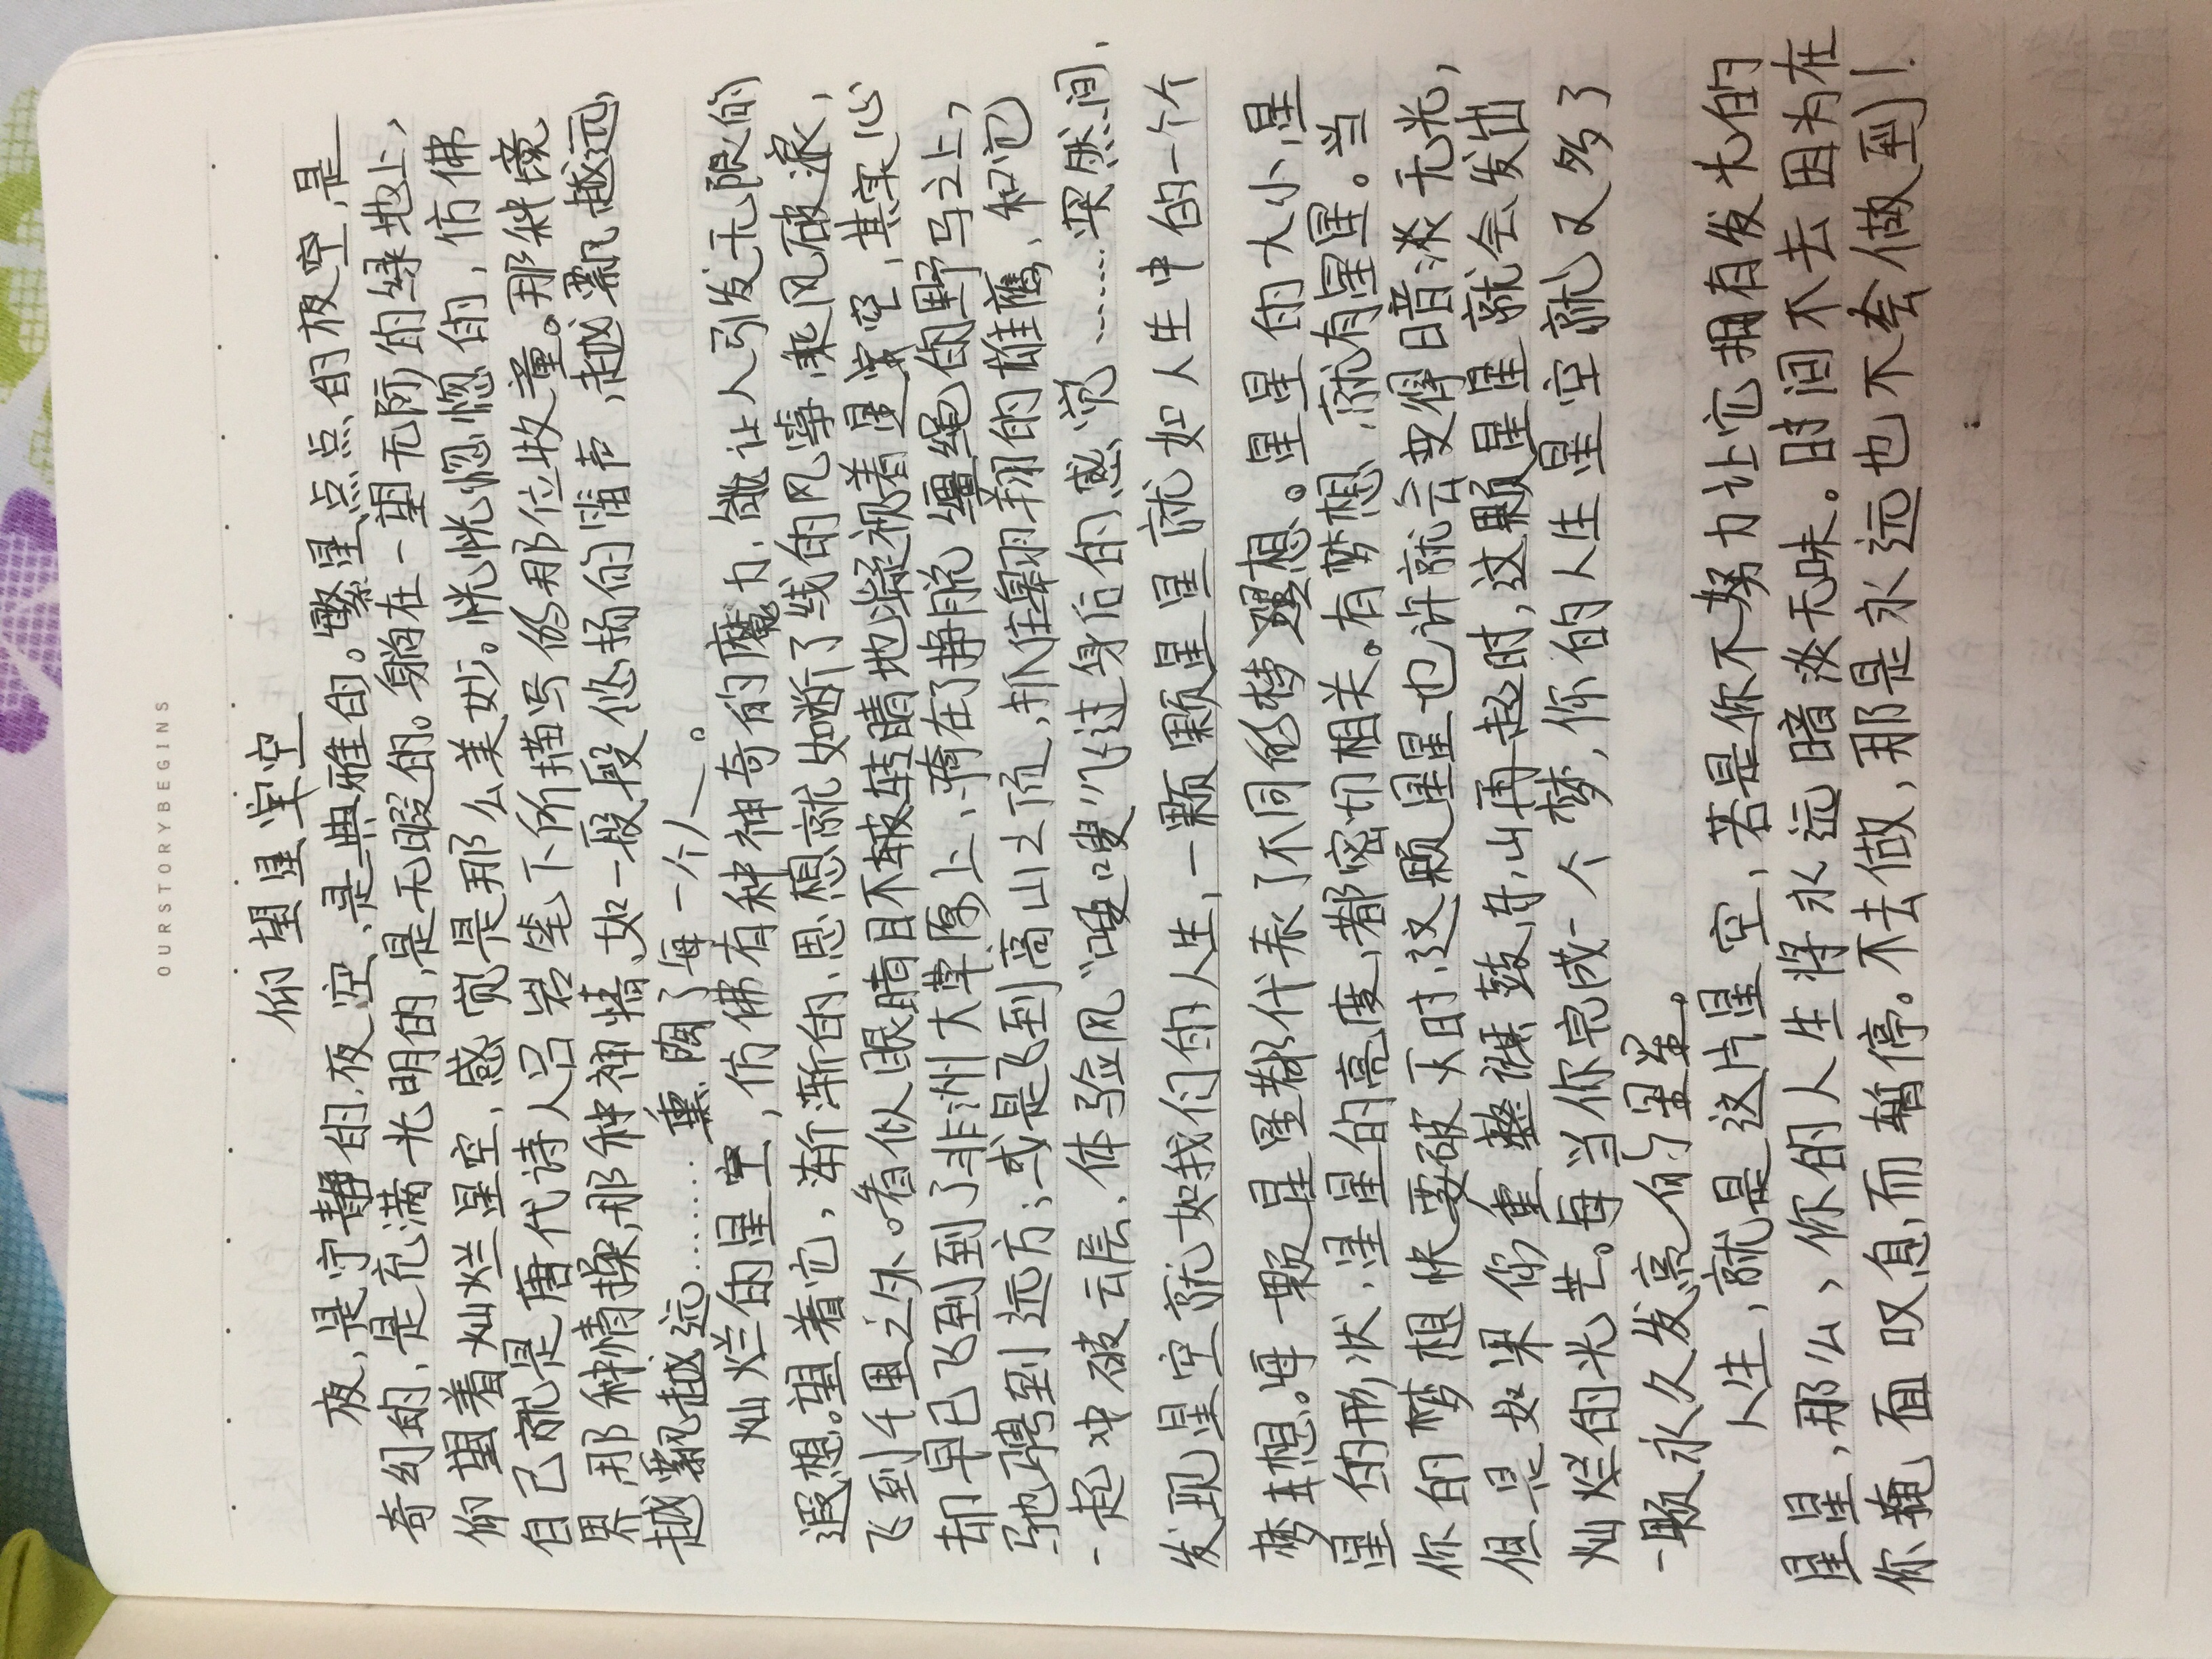 OURSTORYBEGINS
仰望星空
夜,是宁静的,夜空,是典雅的。繁星点点的夜空,是
奇幻的,是充满光明的,是无暇的。躺在一望无际的绿地上,
仰望着灿烂星空,感觉是那么美妙。恍恍惚惚的,仿佛
自己就是唐代诗人吕岩笔下所描写的那位牧童。那种境
界,那种情操,那种神情,如一股股悠扬的笛声,越飘越远,
越飘越远……熏陶了每一个人。
灿烂的星空,仿佛有种神奇的魔力,能让人引发无限的
遐想。望着它,渐渐的,思想就如断了线的风筝,乘风破浪,
飞到千里之外。看似眼睛目不转睛地凝视着星空,其实心
却早已飞到到了非洲大草原上,骑在了挣脱缰绳的野马上,
驰骋到远方;或是飞到高山之顶,抓住翱翔的雄鹰,和它
一起冲破云层,体验风“嗖嗖”飞过身后的感觉……突然间,
发现星空就如我们的人生,一颗颗星星就如人生中的一个个
梦想。每一颗星星都代表了不同的梦想。星星的大小,星
星的形状,星星的亮度,都密切相关。有梦想,就有星星。当
你的梦想快要破灭时,这颗星星也许就会变得暗淡无光,
但是如果你重整旗鼓,东山再起时,这颗星星就会发出
灿烂的光芒。每当你完成一个梦,你的人生星空就又多了
一颗永久发亮的星星。
人生,就是这片星空,若是你不努力让它拥有发光的
星星,那么,你的人生将永远暗淡无味。时间不去因为在
你掩面叹息而暂停。不去做,那是永远也不会做到!